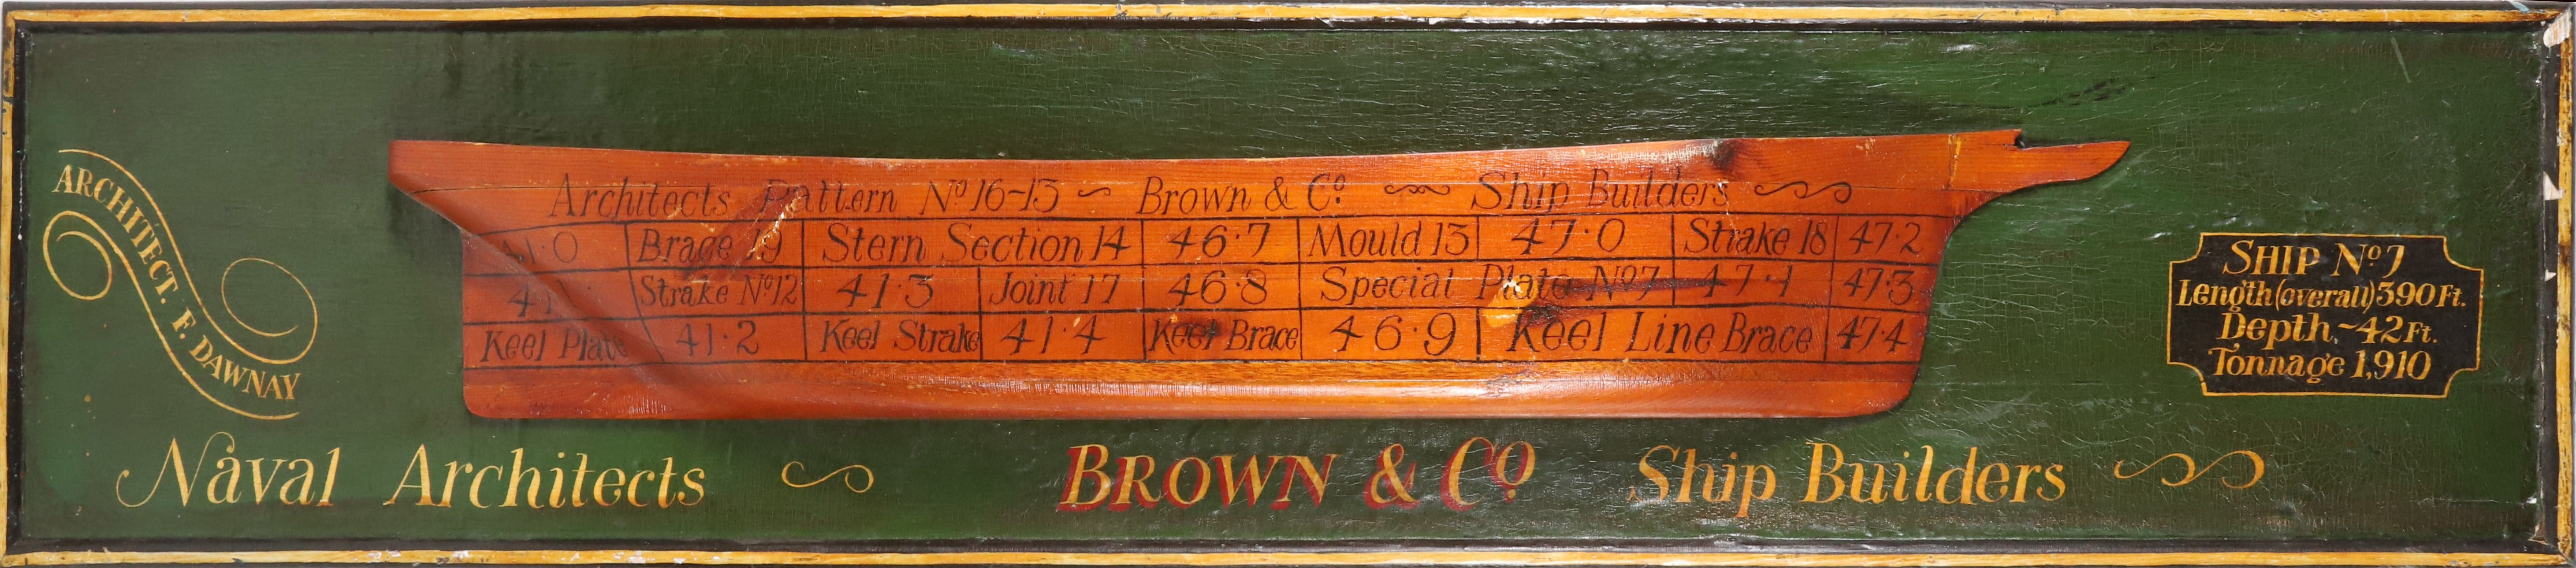 ARCHITECT. F. DAWNAY
Architects Pattern Nº 16-13 ~ Brown & Cº ~ Ship Builders
41·0 Brace 19 Stern Section 14 46·7 Mould 13 47·0 Strake 18 47·2
Strake Nº12 41·3 Joint 17 46·8 Special Plate Nº7 47·1 47·3
Keel Plate 41·2 Keel Strake 41·4 Keel Brace 46·9 Keel Line Brace 47·4
SHIP Nº 7
Length (overall) 390 Ft.
Depth ~ 42 Ft.
Tonnage 1,910
Naval Architects BROWN & Cº Ship Builders